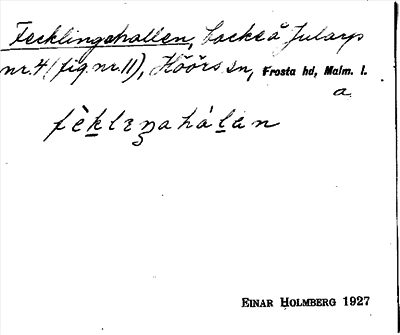 Fecklingahallen, backe å Jularp
nr. 4 (fig nr. 11), Höörs sn, Frosta hd, Malm. l.
a.
fèklıŋahálan
EINAR HOLMBERG 1927